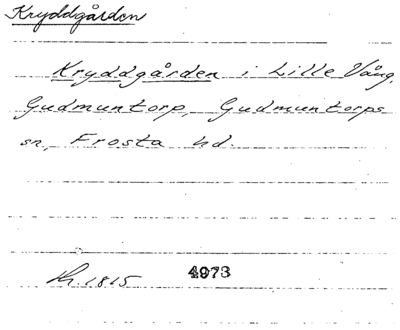 Kryddgården
Kryddgården i Lille Vång,
Gudmuntorp, Gudmuntorps
sn, Frosta hd.
Kh. 1815 4973